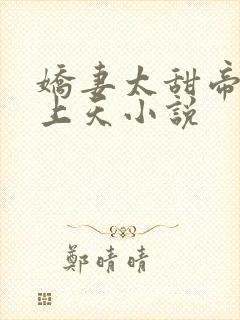 嬌妻太甜帝
上天小説
鄭晴晴